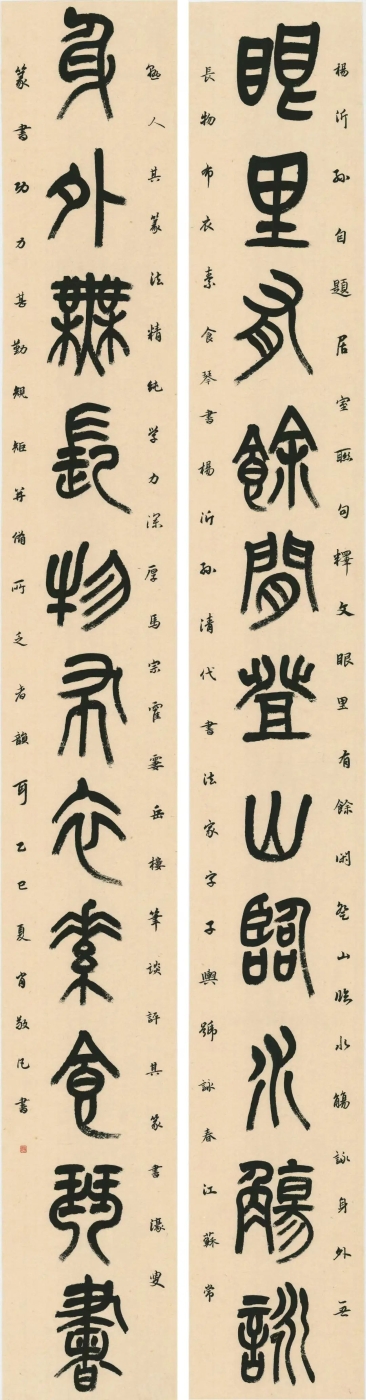 眼里有餘閒登山臨水觴詠
身外無長物布衣素食琴書
楊沂孫自題居室聯句釋文眼里有餘閑登山臨水觴詠身外无
長物布衣素食琴書楊沂孫清代書法家字子輿號詠春江蘇常
熟人其篆法精純学力深厚馬宗霍霎岳樓筆談評其篆書濠叟
篆書功力甚勤規矩并備所乏者韻耳乙巳夏肖敬凡書